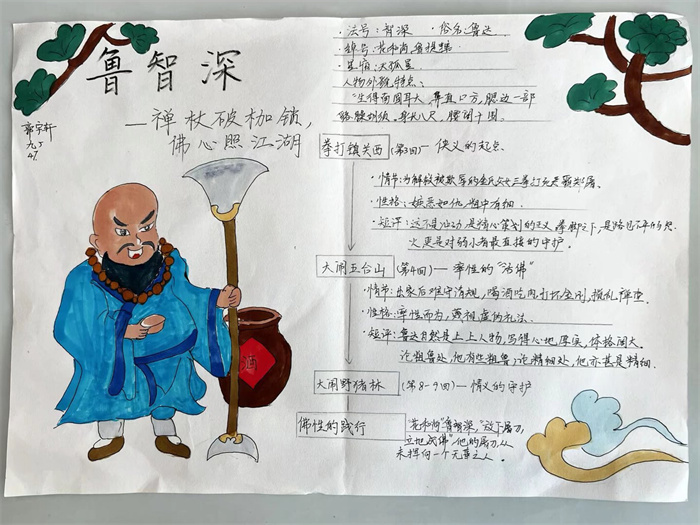 鲁智深
—禅杖破枷锁，
佛心照江湖
章宇轩
九5
47
·法号：智深 ·俗名：鲁达
·绰号：花和尚、鲁提辖
·星宿：天孤星
人物外貌特点：
"生得面圆耳大，鼻直口方，腮边一部
络腮胡须。身长八尺，腰阔十围。
拳打镇关西（第3回）— 侠义的起点
·情节：为解救被欺辱的金氏父女三拳打死恶霸郑屠。
·性格：嫉恶如仇，粗中有细
·短评：这不是冲动，是精心策划的正义 拳脚之下，是路见不平的怒
火，更是对弱小者最直接的守护。
大闹五台山（第4回）— 率性的"活佛"
·情节：出家后难守清规，喝酒吃肉，打坏金刚，搅乱禅堂。
·性格：率性而为，蔑视虚伪礼法。
·短评：鲁达自然是上上人物，写得心地厚实，体格阔大。
论粗鲁处，他有些粗鲁；论精细处，他亦甚是精细。
大闹野猪林（第8-9回）— 情义的守护
佛性的践行
"花和尚"鲁智深，"放下屠刀，
立地成佛"，他的屠刀，从
未挥向一个无辜之人。
酒